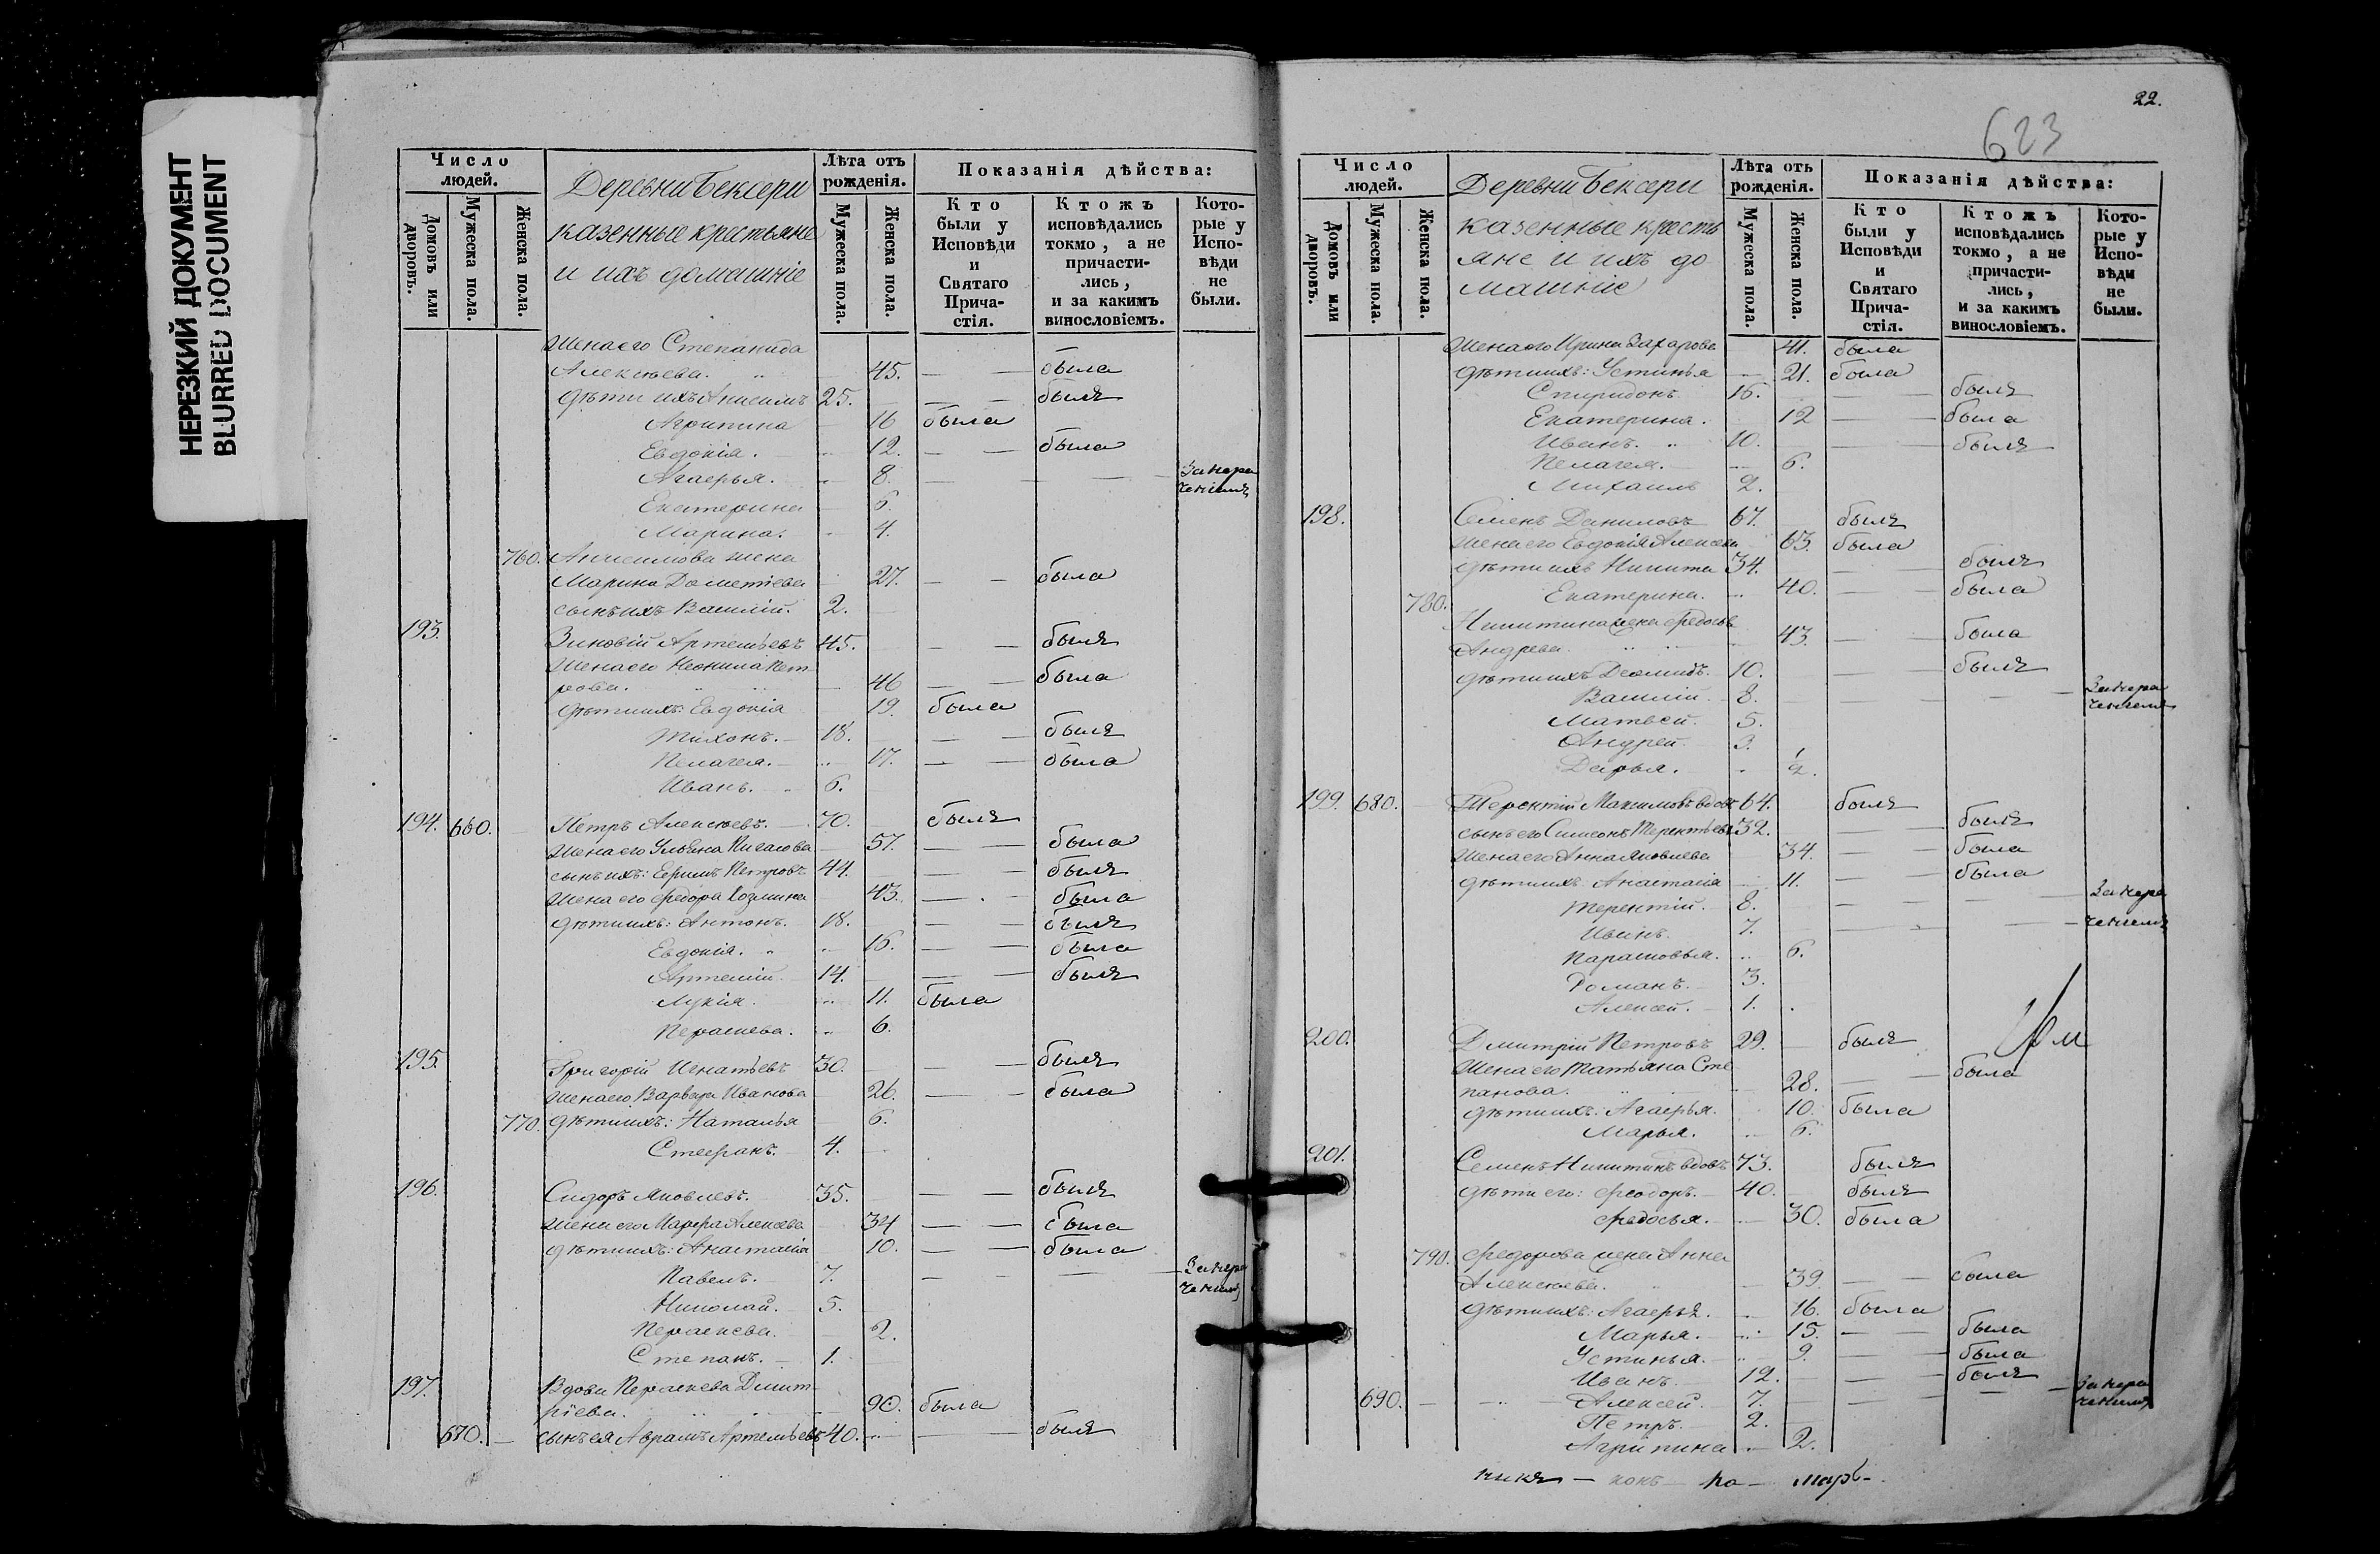 НЕРЕЗКИЙ ДОКУМЕНТ
BLURRED DOCUMENT
Число людей.
Домовъ или дворовъ.
Мужеска пола.
Женска пола.
Деревни Бексери
казенные крестьяне
и ихъ домашніе
Лѣта отъ рожденія.
Мужеска пола.
Женска пола.
Показанія дѣйства:
Кто были у Исповѣди и Святаго Прича-стія.
Ктожъ исповѣдались токмо, а не причасти-лись, и за какимъ винословіемъ.
Кото-рые у Испо-вѣди не были.
Жена его Степанида
Алексѣева. 45. была
Дѣти ихъ Анисимъ 25. былъ
Агрипина 16 была
Евдокія. 12. была
Агаѳья. 8.
Екатерина 6.
Марина. 4.
760. Анисимова жена
Марина Дометіева 27. была
сынъ ихъ Василій. 2.
193. Зиновій Артемьевъ 45. былъ
Жена его Неонила Пет
рова. 46 была
Дѣти ихъ: Евдокія 19. была
Тихонъ. 18. былъ
Пелагея. 17. была
Иванъ. 6.
194. 660. Петръ Алексѣевъ. 70. былъ
Жена его Ульяна 57. была
сынъ ихъ: Ефимъ Петровъ 44. былъ
Жена его Ѳедора Козмина 43. была
Дѣти ихъ: Антонъ. 18. былъ
Евдокія. 16. была
Артемій 14. былъ
Лукія. 11. была
6.
195. Григорій Игнатьевъ 30. былъ
Жена его Варвара Иванова 26. была
770. Дѣти ихъ: Наталья 6.
Стефанъ. 4.
196. Сидоръ Яковлевъ. 35. былъ
Жена его Марѳа Алексѣева 34 была
Дѣти ихъ: Анастасія 10. была
Павелъ. 7.
Николай. 5.
Параскева. 2.
Степанъ. 1.
197. Вдова Параскева Димит
ріева. 90. была
670. сынъ ея Аврамъ Артемьевъ 40. былъ
22.
623
Число людей.
Домовъ или дворовъ.
Мужеска пола.
Женска пола.
Деревни Бексери
казенные кресть
яне и ихъ до
машніе
Лѣта отъ рожденія.
Мужеска пола.
Женска пола.
Показанія дѣйства:
Кто были у Исповѣди и Святаго Прича-стія.
Ктожъ исповѣдались токмо, а не причасти-лись, и за какимъ винословіемъ.
Кото-рые у Испо-вѣди не были.
Жена его Ирина Захарова 41. была
Дѣти ихъ: Устинья 21. была
Спиридонъ 16. былъ
Екатерина. 12 была
Иванъ. 10. былъ
Пелагея. 6.
Михаилъ 2.
198. Семенъ Даниловъ 67. былъ
Жена его Евдокія 63. была
Дѣти ихъ Никита 34. былъ
780. Екатерина. 40. была
Никитина жена Ѳедосья
Андрева 43. была
Дѣти ихъ 10. былъ
Василій 8.
Матвей. 5.
Андрей. 3.
Дарья. 2.
199. 680. Терентій Максимовъ вдовъ 64. былъ
сынъ его Симеонъ Терентьевъ 32. былъ
Жена его Анна Яковлева 34. была
Дѣти ихъ: Анастасія 11. была
Терентій. 8.
Иванъ. 7.
Парасковья. 6.
Романъ. 3.
Алексей. 1.
200. Дмитрій Петровъ 29. былъ
Жена его Татьяна Сте
панова. 28. была
Дѣти ихъ: Агаѳья. 10. была
Марья. 6.
201. Семенъ Никитинъ вдовъ 73. былъ
Дѣти его: Ѳеодоръ. 40. былъ
Ѳедосья. 30. была
790. Ѳедорова жена Анна
Алексѣева. 39 была
Дѣти ихъ: Агаѳья. 16. была
Марья. 15. была
Устинья. 9. была
Иванъ. 12. былъ
690. Алексей. 7.
Петръ. 2.
Агрипина 2.